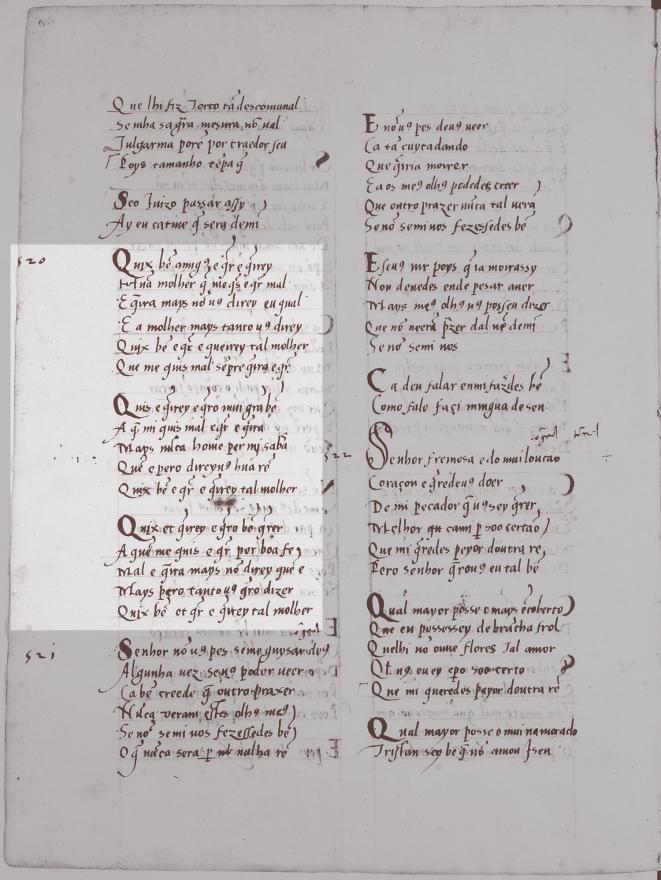 Que lhi fiz Torto tã descomunal
Senha sa gr̃a mesura nõ ual
Julgarma porẽ por traedor sea
Poys tamanho tẽpa q̃
Seo Juizo passar assy
Ay eu catiue q̃ sera demi
520
Quix bẽ amigꝯ e q̃r e q̃rey
hũa molher q̃ me q̃s e q̃r mal
E q̃ira mays nõ uꝯ direy eu qual
E a molher mays tanto uꝯ direy
Quix bẽ e q̃r e queirey tal molher
Que me quis mal sẽpre q̃ira e q̃r
Quis e q̃irey e q̃ro mui grã bẽ
A q̃ mi quis mal e q̃r e q̃ira
Mays nũca home per mi saba
Que e pero direyuꝯ hua rẽ
Quix bẽ e q̃r e q̃irey tal molher
Quix et q̃irey e q̃ro bẽ q̃rer
A quẽ me quis e q̃r por boa fe
Mal e q̃ira mays nõ direy que e
Mays pero tanto uꝯ q̃ro dizer
Quix bẽ et q̃r e q̃irey tal molher
521
Senhor nõ uꝯ pes se me guysar deꝯ
Algunha vez seuꝯ poder ueer
Ca bẽ creede q̃ outro praxer
Nũca veram estes olhꝯ meꝯ
Se nõ semi uos fezessedes bẽ
O q̃ nũca sera p̱ nulha rẽ
E nõ uꝯ pes deuꝯ ueer
Ca tã cuytadando
Que q̃rria morrer
Ea os meꝯ olhꝯ podedes creer
Que outro prazer nũca tal vera
Se nõ semi uos fezessedes bẽ
E seuꝯ uir poys q̃ ia moirassy
Non deuedes ende pesar auer
Mays meꝯ olhꝯ uꝯ possen dizer
Que nõ ueerã p̃zer dal uẽ demi
Se nõ semi uos
Ca deu falar enmi fazdes bẽ
Como falo façi mingua de sen
522
Senhor fremosa e do mui loução
Coraçon e q̃redeuꝯ doer
De mi pecador q̃ uꝯ sey q̃rer
Melhor qu cami p̱ soo certão
Que mi q̃redes peyor doutra rẽ
Pero senhor q̃rouꝯ eu tal bẽ
Qual mayor posse o mays ẽcoberto
Que eu possessey de brãcha frol
Quelhi nõ ouue flores Tal amor
Qt uꝯ eu ey epo soo certo
Que mi queredes peyor doutra rẽ
Qual mayor posse o mui namorado
Tristan sey bẽ q̃ nõ amou Iseu